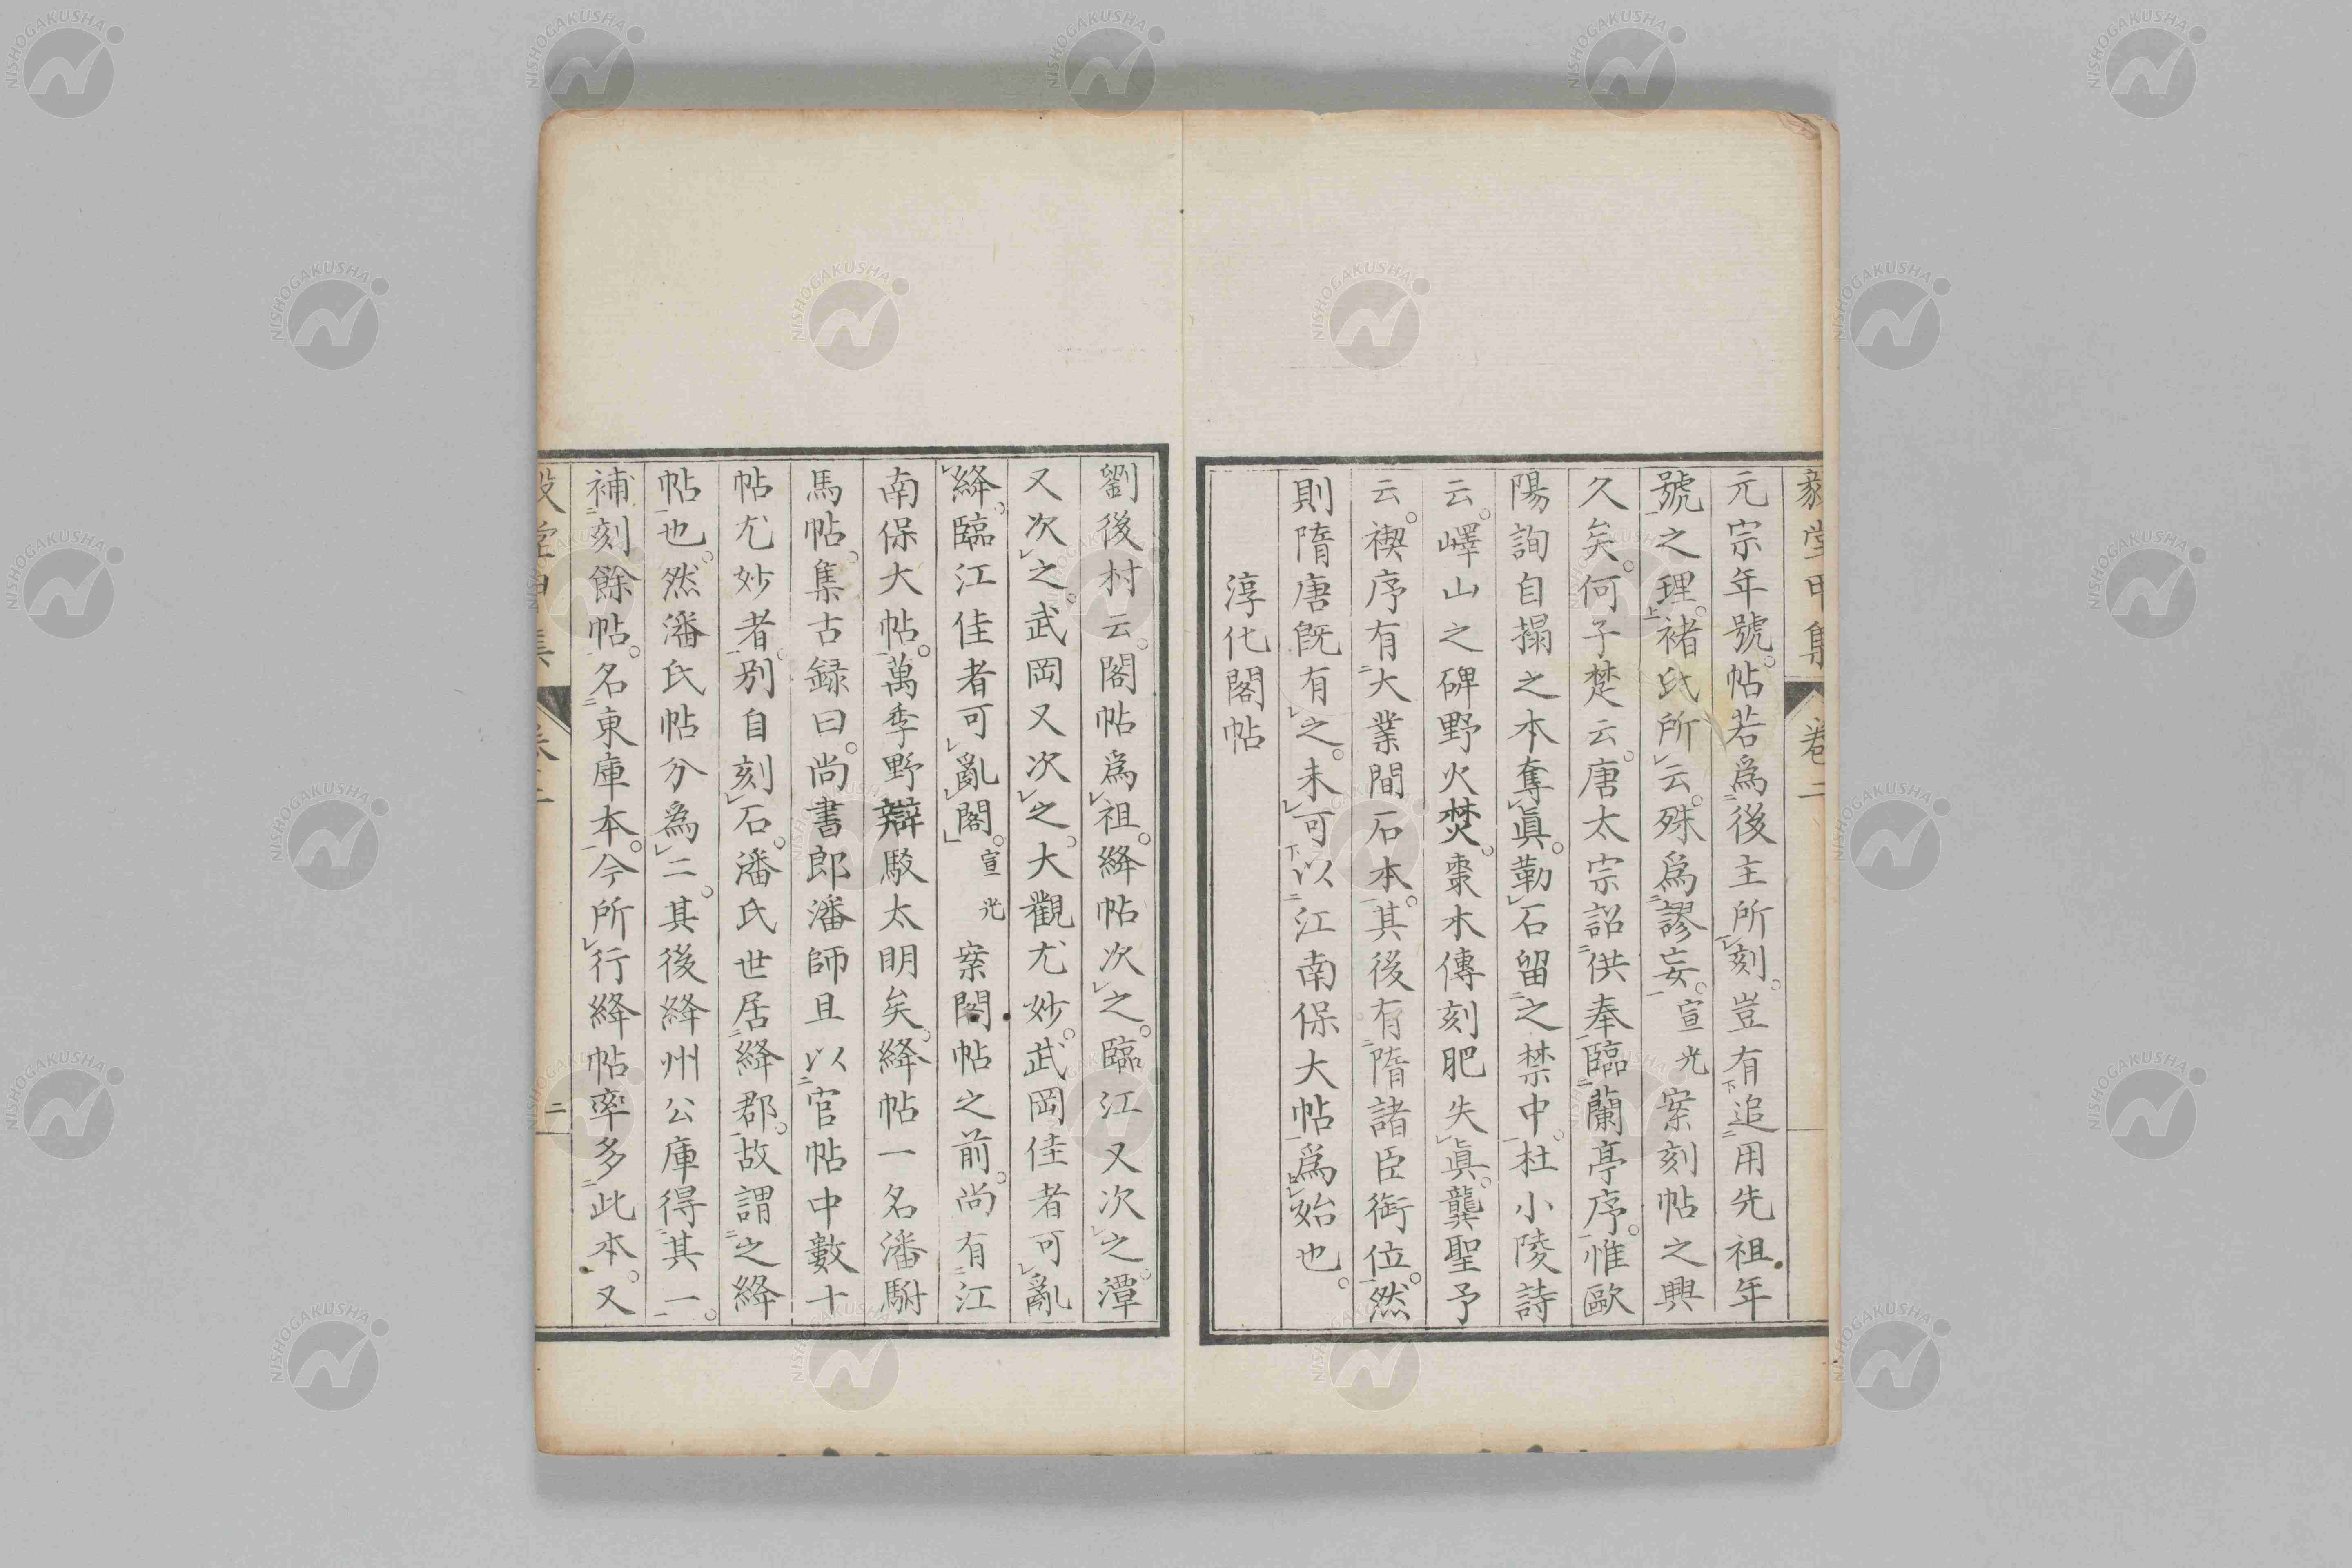 元宗年號。帖若爲後主所刻。豈有追用先祖年
號之理。褚氏所云。殊爲謬妄。宣光案刻帖之興
久矣。何子楚云。唐太宗詔供奉臨蘭亭序。惟歐
陽詢自搨之本奪眞。勒石留之禁中。杜小陵詩
云。嶧山之碑野火焚。棗木傳刻肥失眞。龔聖予
云。禊序有大業間石本。其後有隋諸臣銜位。然
則隋唐既有之。未可以江南保大帖爲始也。
淳化閣帖
劉後村云。閣帖爲祖。絳帖次之。臨江又次之。潭
又次之。武岡又次之。大觀尤妙。武岡佳者可亂
絳。臨江佳者可亂閣。宣光案閣帖之前。尚有江
南保大帖。萬季野辯駁太明矣。絳帖一名潘駙
馬帖。集古録曰。尚書郎潘師旦以官帖中數十
帖尤妙者。別自刻石。潘氏世居絳郡。故謂之絳
帖也。然潘氏帖分爲二。其後絳州公庫得其一。
補刻餘帖。名東庫本。今所行絳帖率多此本。又
二
NISHOGAKUSHA